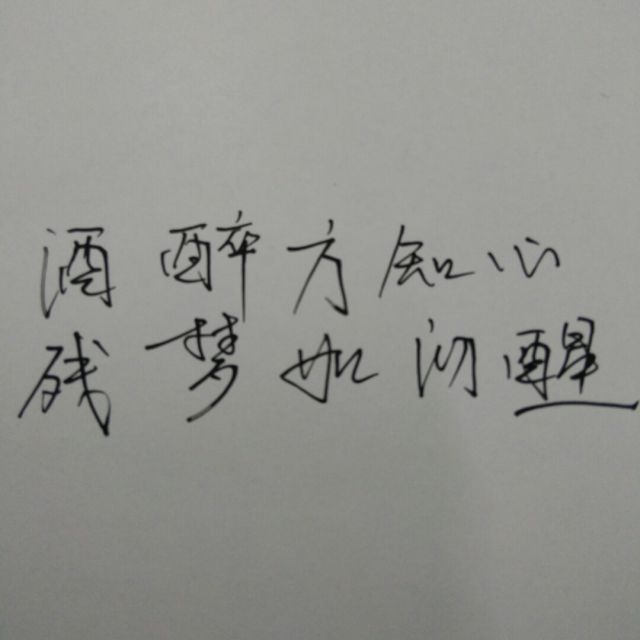 酒醉方知心
残梦如何醒